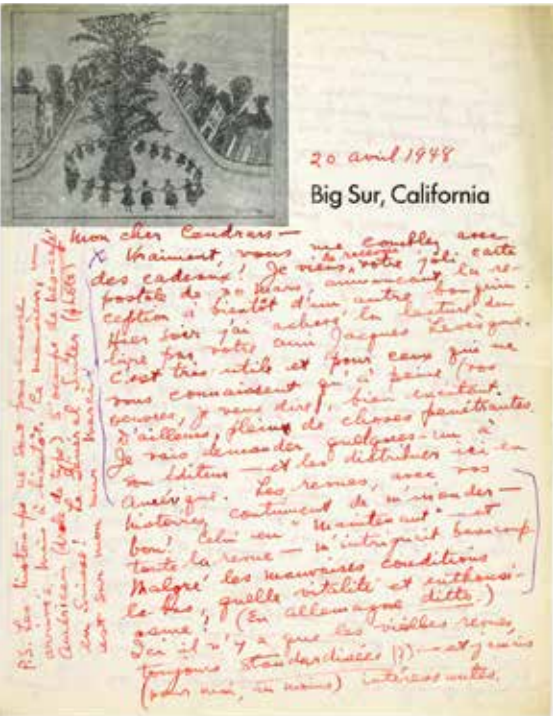 20 avril 1948
Big Sur, California
Mon cher Cendrars —
Vraiment, vous me comblez avec
des cadeaux! Je viens de recevoir votre joli carte
postale de 30 Mars, annoncant la re-
ception à bientôt d'un autre bouquin.
Hier soir j'ai achevé la lecture du
livre par votre ami Jacques Levesque.
C'est très utile et pour ceux qui ne
vous connaissent qu'à peine (vos
oeuvres, je veux dire) bien excitant.
D'ailleurs, pleine de choses penétrantes.
Je vais demander quelques-un à
son éditeur — et les distribuer ici en
Amérique. Les revues, avec vos
histoires continuent de m'inonder —
bon! Celui en "Maintenant" — et
toute la revue — m'intriguait beaucoup.
Malgré les mauvaises conditions
là-bas, quelle vitalité et enthousi-
asme! (En allemagne ditto.)
Ici il n'y a que les vieilles revues,
toujours standardisées (!) — et jamais
(pour moi, au moins) interessantes.
P.S. Les ne sont pas encore
arrivés, mais à bientôt. Ce monsieur, un
Américain s'occupe de beaucoup
en Suisse! Le Général Suter (photo)
est sur mon mur